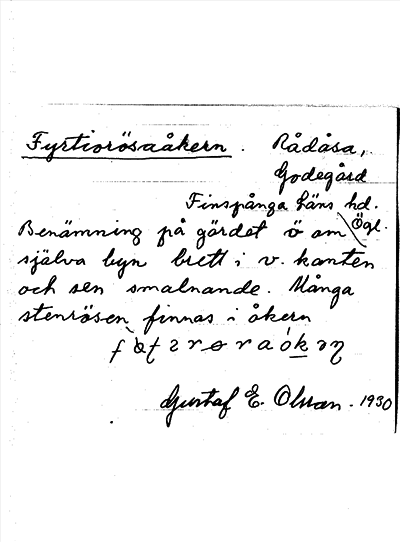 Fyrtiorösaåkern. Rådåsa,
Godegård
Finspånga läns hd.
Ögl.
Benämning på gärdet ö om
själva byn brett i v. kanten
och sen smalnande. Många
stenrösen finnas i åkern
Gustaf E. Olsson. 1930